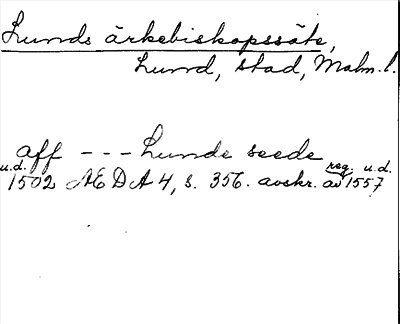 Lunds ärkebiskopssäte,
Lund, stad, Malm. l.
aff --- Lunde seede
u.d. 1502 ÆDA 4, s. 356. avskr. av reg. u.d. 1557